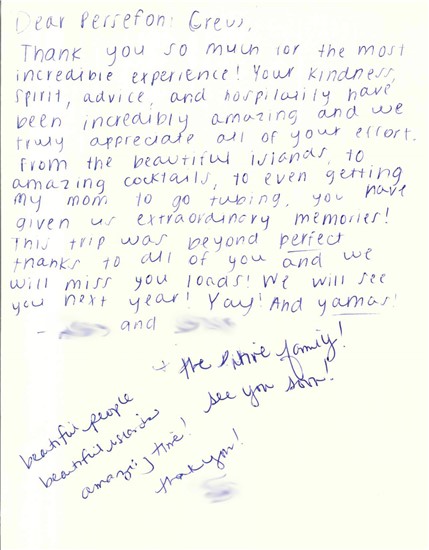 Dear Persefoni Crew,
Thank you so much for the most
incredible experience! Your kindness,
spirit, advice, and hospitality have
been incredibly amazing and we
truly appreciate all of your effort.
From the beautiful islands, to
amazing cocktails, to even getting
my mom to go tubing, you have
given us extraordinary memories!
This trip was beyond perfect
thanks to all of you and we
will miss you loads! We will see
you next year! Yay! And yamas!
- and
+ the entire family!
see you soon!
beautiful people
beautiful islands
amazing time!
thank you!